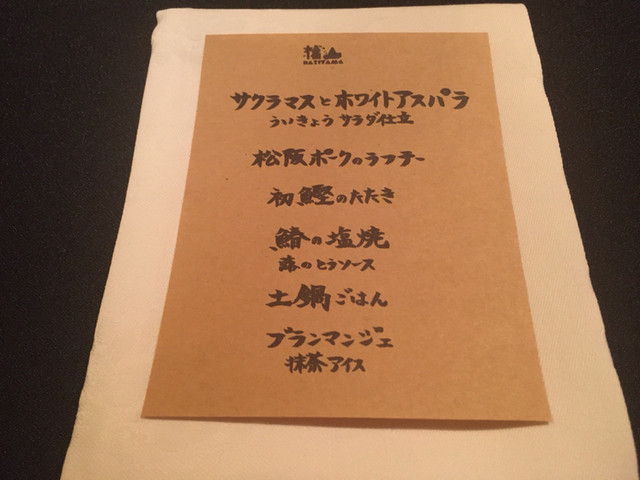 HAZIYAMA
サクラマスとホワイトアスパラ
ういきょう サラダ仕立
松阪ポークのラフテー
初鰹のたたき
鰆の塩焼
蕗のとうソース
土鍋ごはん
ブランマンジェ
抹茶アイス